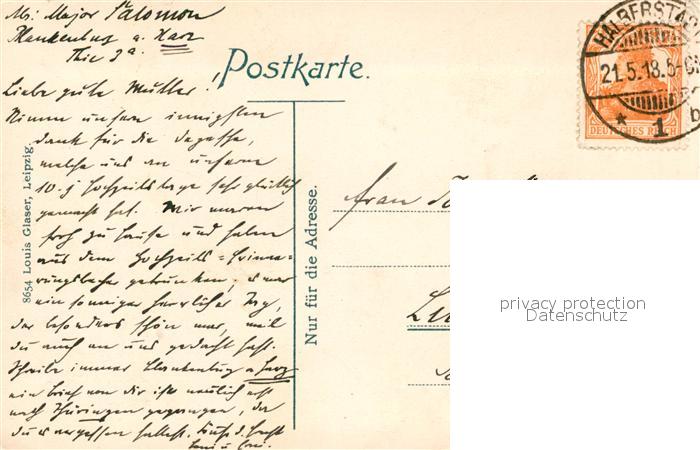 Major Salomon
Blankenburg a. Harz
Postkarte.
Liebe gute Mutter!
Nimm unsern innigsten
Dank für die Depesche,
welche uns an unserm
10. j Hochzeitstage sehr glücklich
gemacht hat. Wir waren
froh zu Hause und haben
aus dem Hochzeits-Erinne-
rungsbecher getrunken, es war
ein sonniger herrlicher Tag,
der besonders schön war, weil
du auch an uns gedacht hast.
immer Blankenburg a Harz
ein Brief von dir ist neulich erst
nach Thüringen gegangen, da
du es vergessen hattest.
8654 Louis Glaser, Leipzig
Nur für die Adresse.
HALBERSTADT
21.5.18.5-6
* 1 b
DEUTSCHES REICH
Frau
privacy protection
Datenschutz